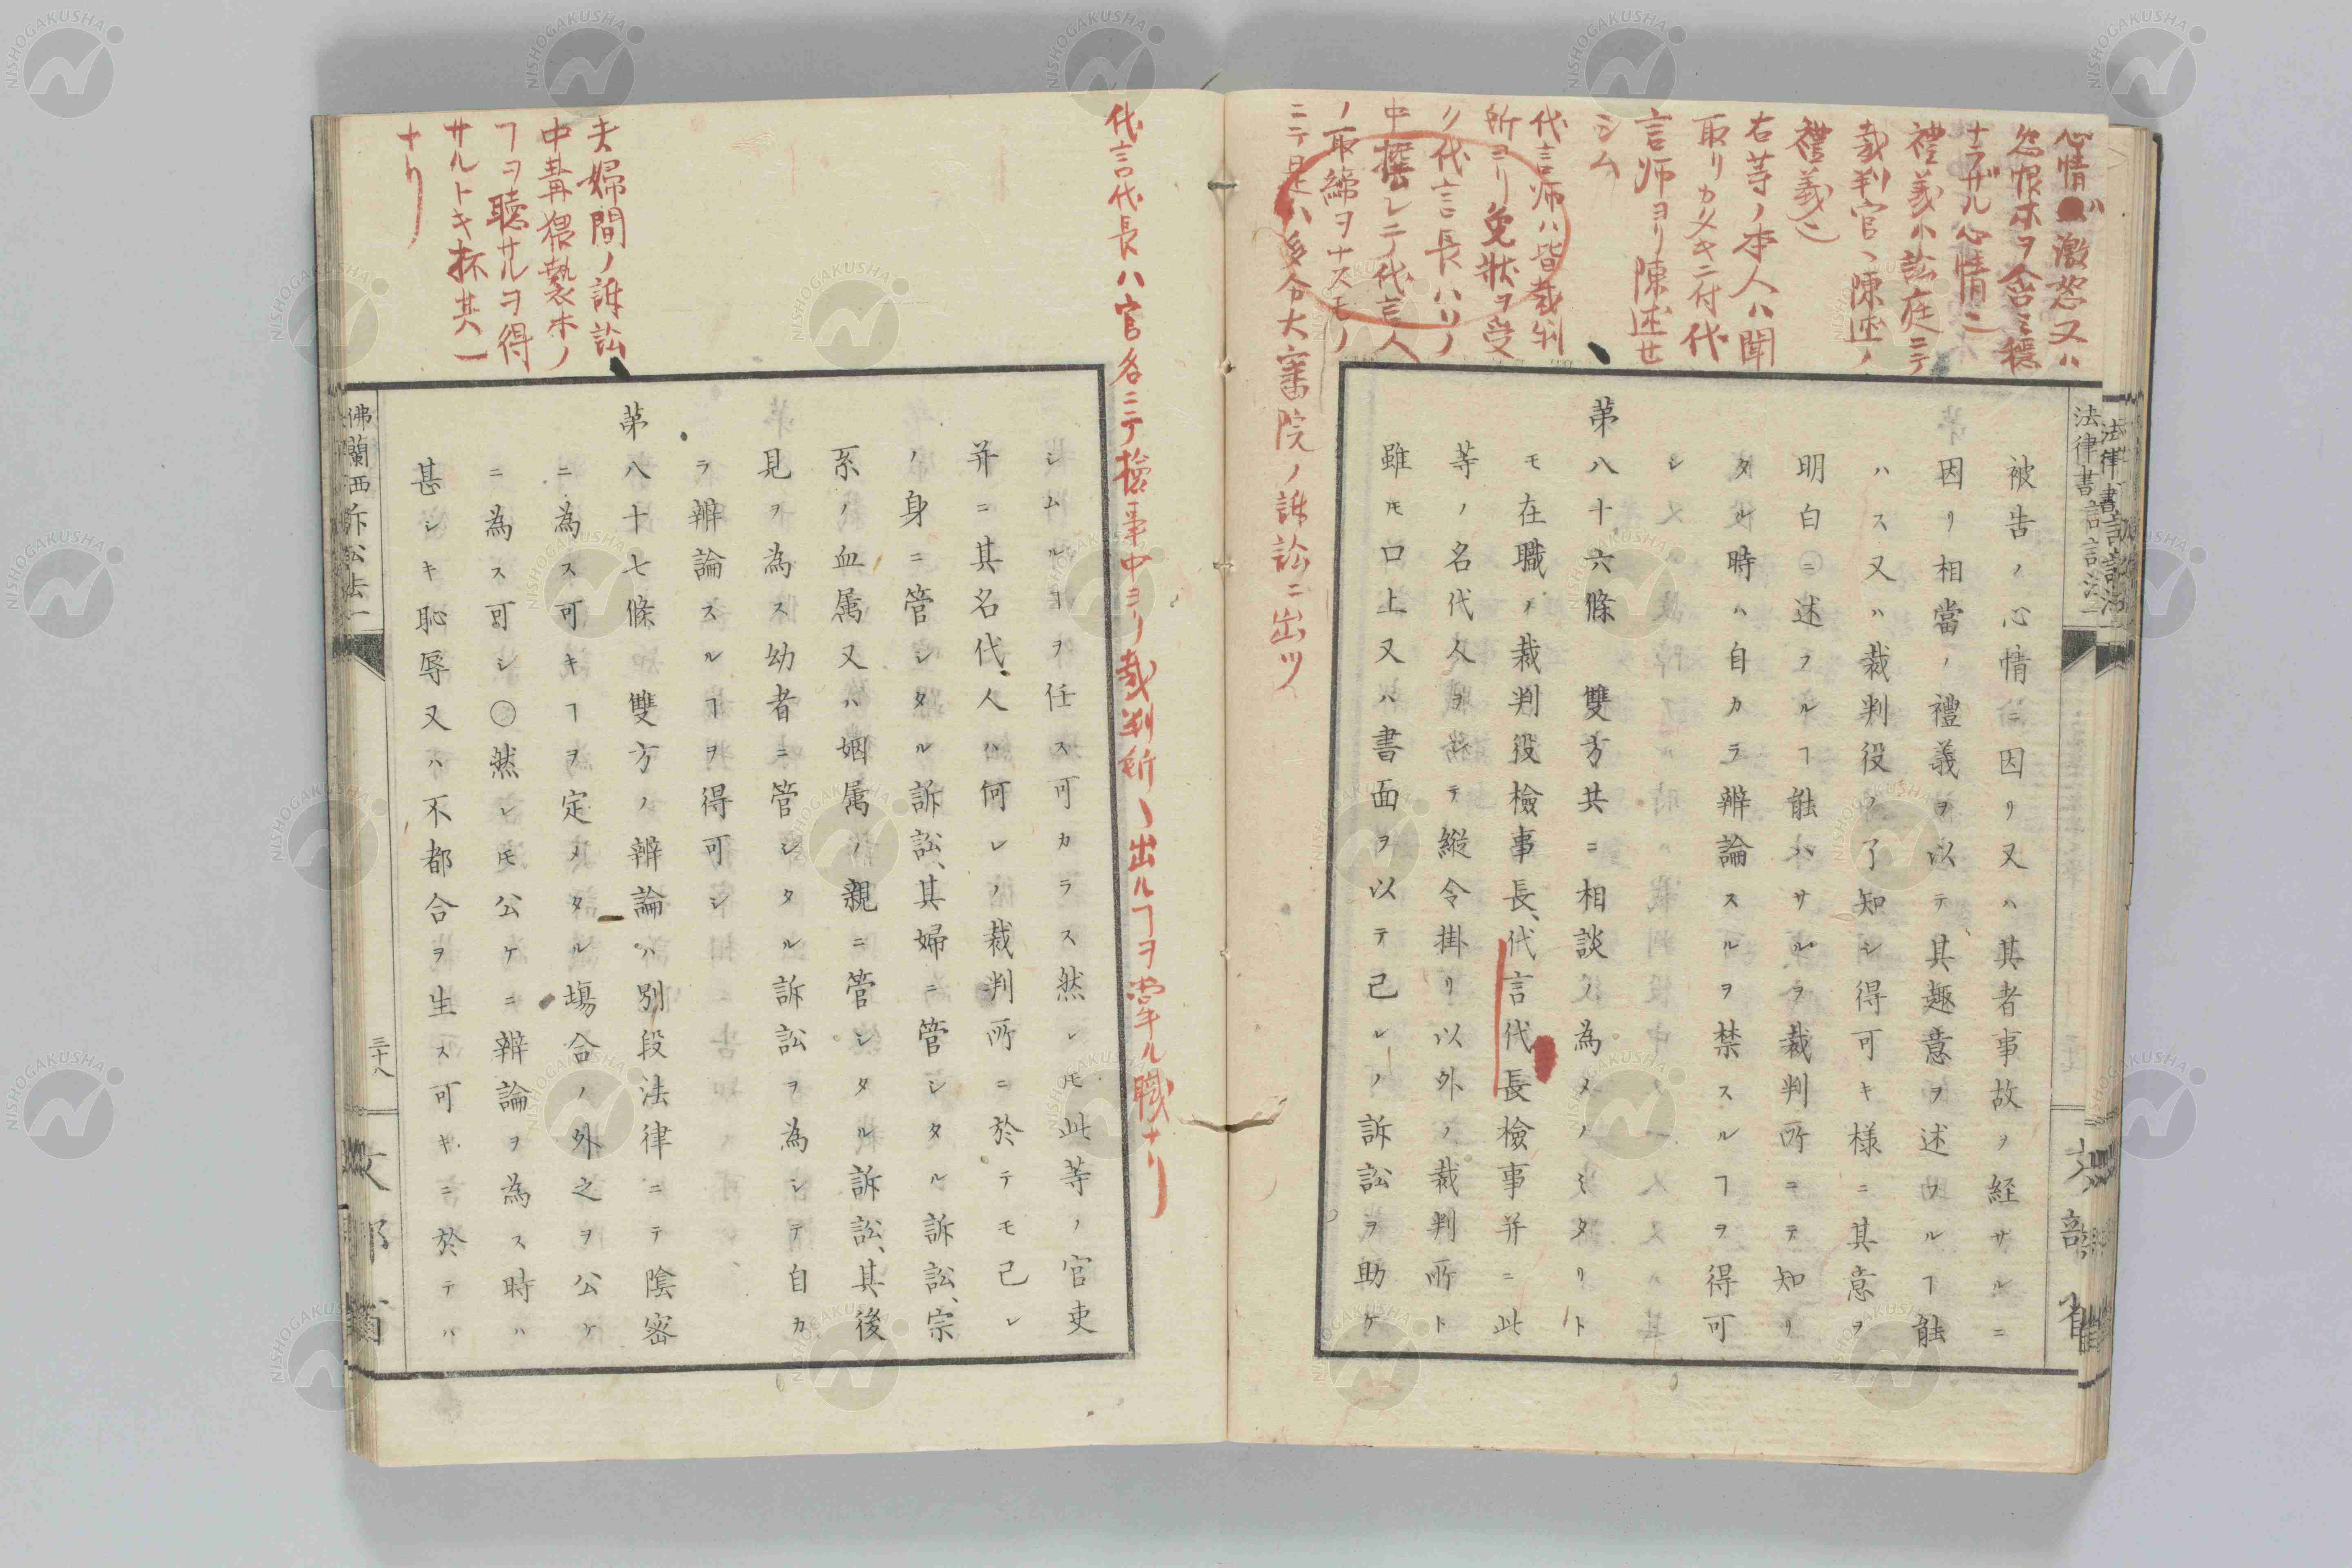 心情ハ激怒又ハ
怨恨ホヲ含ミ穏
ナラザル心情ニ
禮義ハ訟庭ニテ
裁判官ヘ陳述ノ
禮義ニ
右等ノ本人ハ聞
取リカタキニ付代
言師ヨリ陳述セ
シム
代言師ハ皆裁判
所ヨリ免状ヲ受
リ代言長ハソノ
中撰レニテ代言人
ノ取締ヲナスモノ
ニテ是ハ多分大審院ノ訴訟ニ出ツ
法律書訴訟法一
被告ノ心情ニ因リ又ハ其者事故ヲ経サルニ
因リ相當ノ禮義ヲ以テ其趣意ヲ述フルヿ能
ハス又ハ裁判役ノ了知シ得可キ様ニ其意ヲ
明白ニ述フルヿ能ハサルヲ裁判所ニテ知リ
タル時ハ自カラ辨論スルヲ禁スルヿヲ得可
シ
第八十六條 雙方共ニ相談ノ為メノミタリト
モ在職ノ裁判役檢事長、代言代長檢事并ニ此
等ノ名代人ヲシテ縦令掛リ以外ノ裁判所ト
雖𪜈口上又ハ書面ヲ以テ己レノ訴訟ヲ助ケ
代言代長ハ官名ニテ檢事中ヨリ裁判所ヘ出ルヿヲ掌ル職ナリ
シムルヿヲ任ス可カラス然レ𪜈此等ノ官吏
并ニ其名代人ハ何レノ裁判所ニ於テモ己レ
ノ身ニ管シタル訴訟、其婦ニ管シタル訴訟、宗
系ノ血属又ハ姻属ノ親ニ管シタル訴訟、其後
見ヲ為ス幼者ニ管シタル訴訟ヲ為シテ自カ
ラ辨論スルヿヲ得可シ
第八十七條 雙方ノ辨論ハ別段法律ニテ陰密
ニ為ス可キヿヲ定メタル場合ノ外之ヲ公ケ
ニ為ス可シ〇然レ𪜈公ケニ辨論ヲ為ス時ハ
甚シキ恥辱又ハ不都合ヲ生ス可キニ於テハ
夫婦間ノ訴訟
中冓猥褻ホノ
ヿヲ聴サルヲ得
サルトキ抔其一
ナリ
佛蘭西訴訟法一
三十八